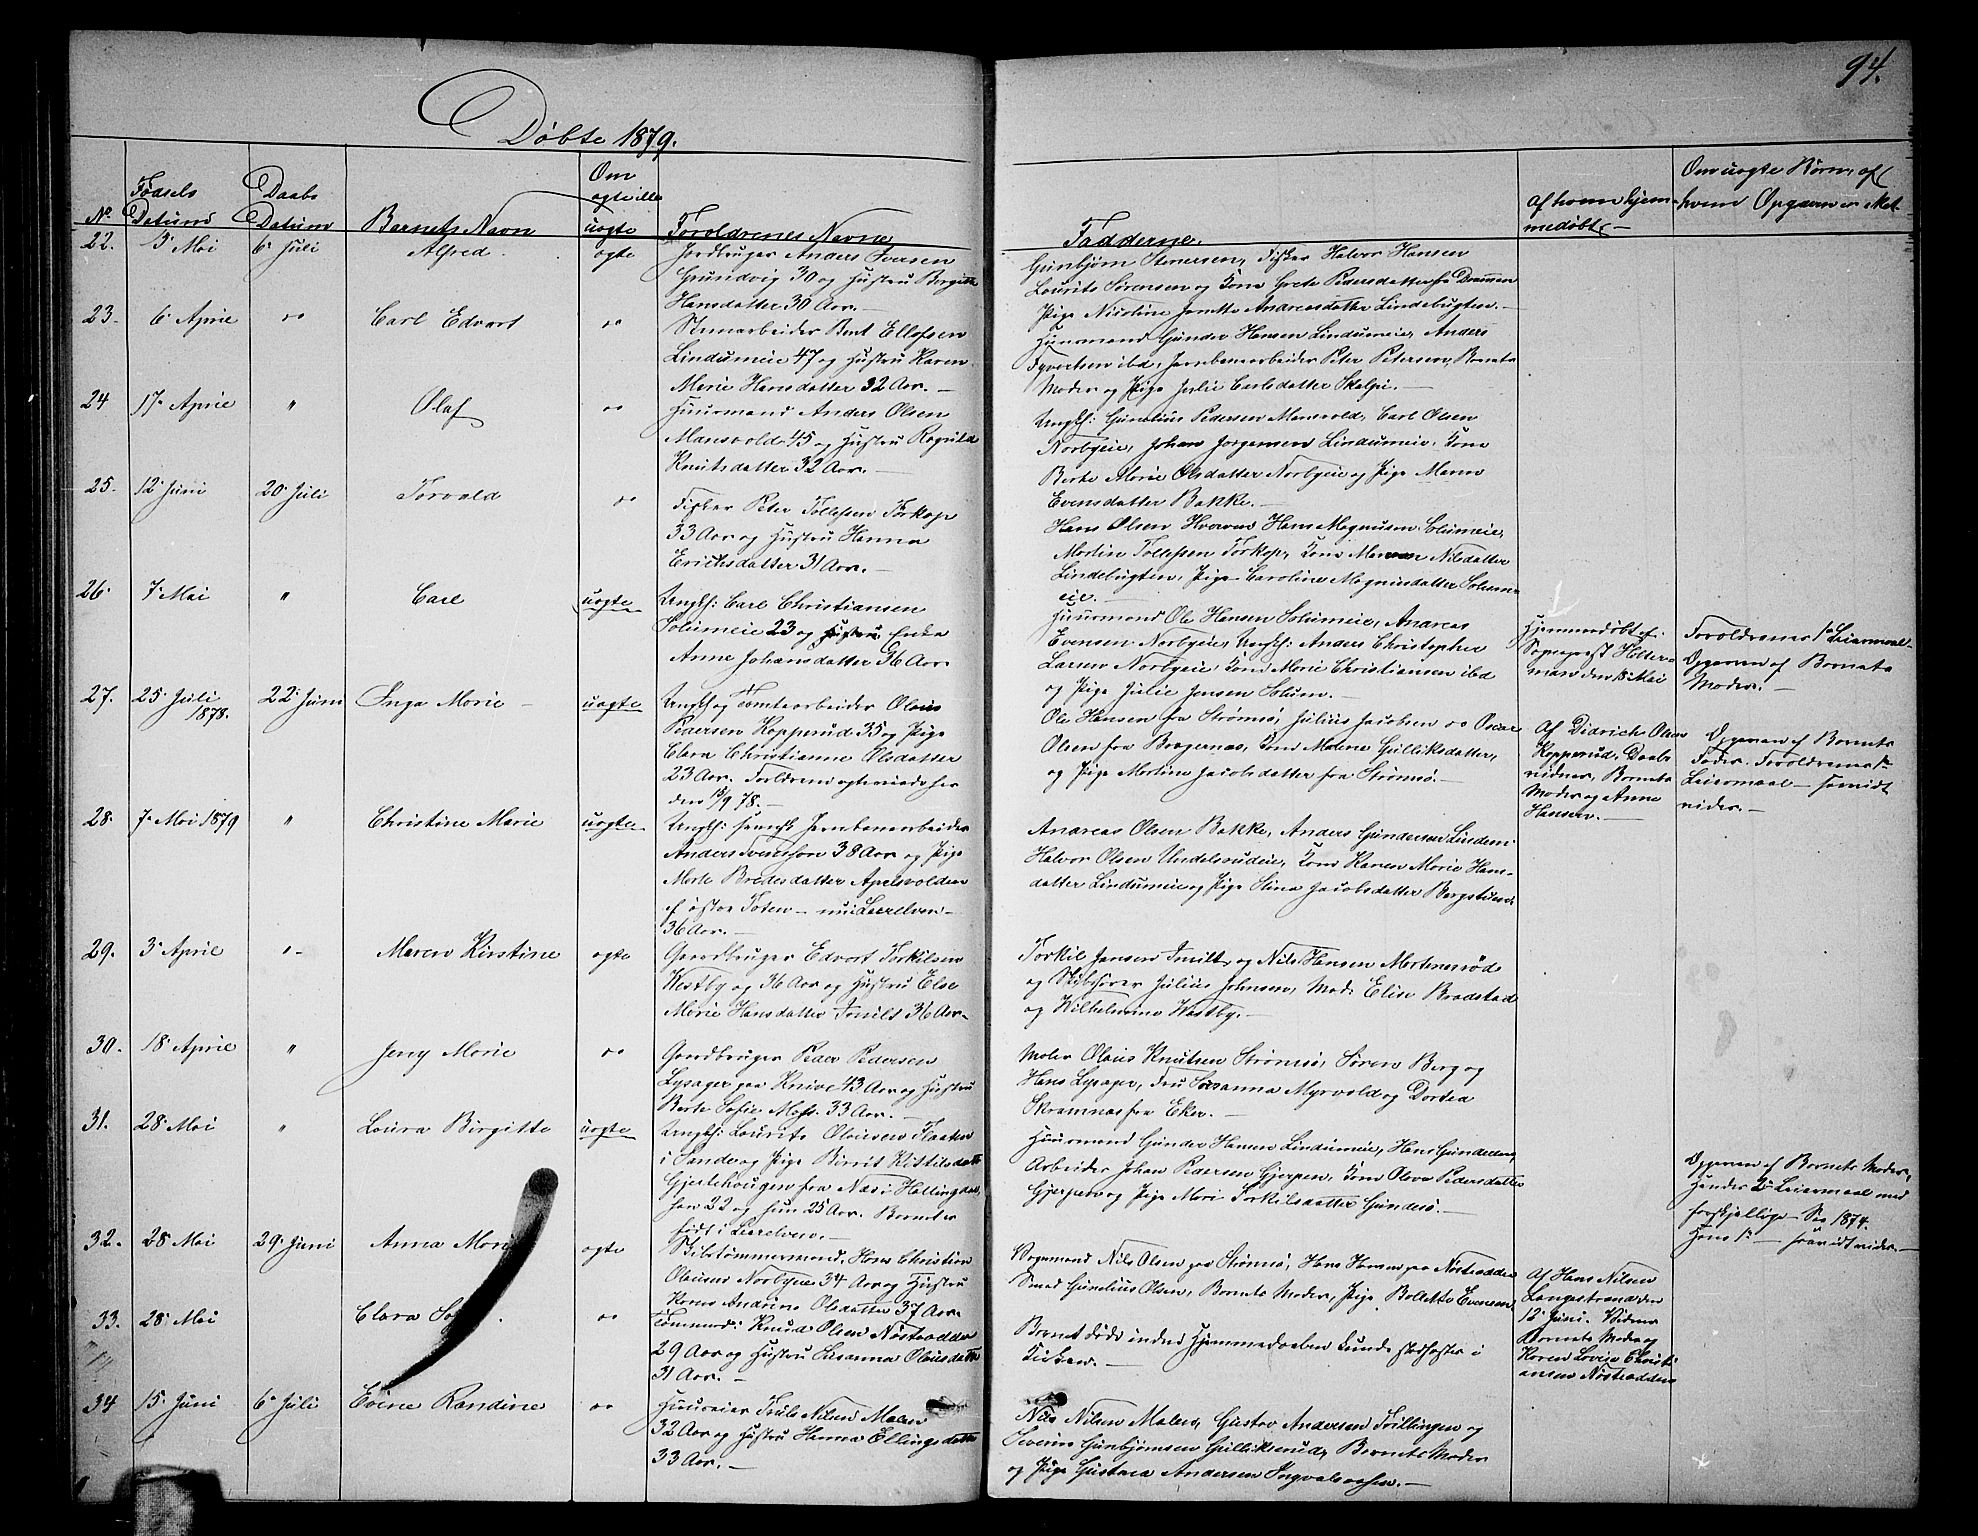 94.
Döbte 1879.
No. Födsels Datum Daabs Datum Barnets Navn Om ægte ell. uægte Forældrenes Navne Fadderne. Af hvem hjemmedøbt. Om uægte Börn, af hvem Opgaven er Met
22. 5 Mai 6 Juli Alfred. ægte Jordbruger Anders Iversen
Grundvig 30 og Hustru Birgitte
Hansdatter 30 Aar.
Gunbjørn Stenersen, Fisker Halvor Hansen
Laurits Sørensen og Kone Grete Pedersdatter fra Drammen
Pige Nicoline Andreasdatter Lindebugten.
23. 6 April Carl Edvart Stenarbeider Bernt Ellefsen
Lindumeie 47 og Hustru Karen
Marie Hansdatter 32 Aar.
Huusmand Gunder Hansen Lindumeie, Anders
Syvertsen ibd, Jernbanearbeider Peter Petersen, Barnets
Moder og Pige Julie Carlsdatter Skalpi.
24 17 April " Olaf Huusmand Anders Olsen
Mansvold 45 og Hustru Ragnild
Knutsdatter 32 Aar.
Ungkf: Gunelius Pedersen Mansvold, Carl Olsen
Norbyeie, Johan Jørgensen Lindumeie, Kone
Berte Marie Olsdatter Norbyeie og Pige Maren
Evensdatter Bakke.
25. 12 Juni 20 Juli Torvald Fisker Peter Tollefsen Torkop
33 Aar og Hustru Hanna
Ericksdatter 31 Aar.
Hans Olsen Hans Magnusen Solumeie,
Martin Tollefsen Torkop, Kone Maren Nilsdatter
Lindebugten, Pige Caroline Magnusdatter Solum-
eie.
26. 7 Mai " Carl uægte Ungkf: Carl Christiansen
Solumeie 23 og Enke
Anne Johansdatter 36 Aar
Huusmand Ole Hansen Solumeie, Andreas
Evensen Norbyeie, Ungkf: Anders Christopher
Larsen Norbyeie, Kone Marie Christiansen ibd
og Pige Julie Jensen Solum.
Hjemmedøbt af
Sogneprest Holter-
man den 18 Mai
Forældrenes 1ste Leiermaal
Opgaven af Barnets
Moder.
27. 25 Juli
1878. 22 Juni Inga Marie uægte Ungkf og Tomtearbeider Olaus
Pedersen Kopperud 35 og Pige
Clara Christianne Olsdatter
23 Aar. Forældrene ægteviede her
den 15/9 78.
Ole Hansen fra Strømsø, Julius Jacobsen Oscar
Olsen fra Bragernæs, Kone Malene Gulliksdatter,
og Pige Martine Jacobsdatter fra Strømsö.
Af Didrich Olsen
Kopperud, Daabs
vidner, Barnets
Moder og Anne
Hansen.
Opgaven af Barnets
Fader. Forældrenes 1ste
Leiermaal saavidt
vides.
28. 7 Mai 1879 " Christine Marie uægte Ungkf: svensk Jernbanearbeider
Anders Svensson 38 Aar og Pige
Marte Bredesdatter Apelsvolden
af østre Toten nu i Leerelven
36 Aar.
Andreas Olsen Bakke, Anders Gundersen Lindum
Halvor Olsen Undelsrudeie, Kone Karen Marie Hans-
datter Lindumeie og Pige Stina Jacobsdatter Bergstuen
29. 3 April Maren Kirstine ægte Gaardbruger Edvart Torkilsen
Westby og 36 Aar og Hustru Else
Marie Hansdatter Innilt 36 Aar
Torkil Jensen Innilt, og Nils Hansen Mortensrød
og Skibsfører Julius Johnsen, Mad: Elise Bradstad
og Wilhelmine Westby.
30. 18 April " Jeny Marie Gaardbruger Peder Pedersen
Lysager paa Knive 43 Aar og Hustru
Berte Sofie Mofs. 33 Aar.
Maler Olaus Knutsen Strømsö, Søren Berg og
Hans Lysager, Fru Susanna Myrvold og Dortea
Skramnæs fra Eker.
31. 28 Mai " Laura Birgitte uægte Ungkf: Laurits Olausen Flaaten
i Sande og Pige Birrit Kittilsdatter
Gjestehougen fra Næs i Hallingdal,
han 22 og hun 25 Aar. Barnet er
født i Leerelven.
Huusmand Gunder Hansen Lindumeie, Hans Gundersen,
Arbeider Johan Pedersen Gjerpen, Kone Olava Pedersdatter
Gjerpen og Pige Mari Torkilsdatter Gundesö.
Opgaven af Barnets Moder,
Hendes 2det Leiermaal med
forskjellige Sees 1874.
Hans 1ste saavidt vides.
32. 28 Mai 29 Juni Anna Mari ægte Skibstømmermand Hans Christian
Olausen Norbyeie 34 Aar og Hustru
Karen Andrine Olsdatter 37 Aar.
Vognmand Nils Olsen paa Strømsö, Hans Hansen paa Nöstrodden
Smed Gunelius Olsen, Barnets Moder, Pige Bolette Evensen,
33. 28 Mai Clara Sof Tømmerm: Knud Olsen Nöstrodden
29 Aar og Hustru Susanna Olausdatter
31 Aar.
Barnet døde inden Hjemmedaaben kunde stadfæstes i
Kirken.
Af Hans Nilsen
Langestrand den
12 Juni. Vidner
Barnets Moder og
Karen Lovise Christi-
ansen Nöstrodden
34 15 Juni 6 Juli Evine Randine Huuseier Truls Nilsen Malen
32 Aar og Hustru Hanna Ellingsdatter
33 Aar.
Nils Nilsen Malen, Gustav Andersen Trillingen og
Severin Gunbjørnsen Gulliksrud, Barnets Moder
og Pige Gustava Andersen Ingvalsaasen.